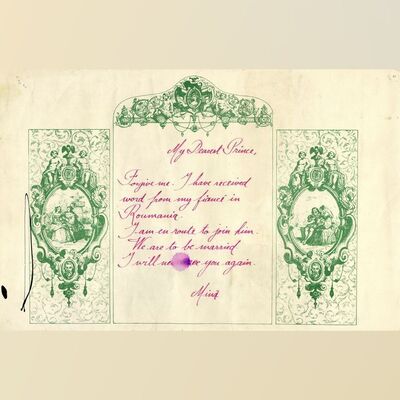 My Dearest Prince,
Forgive me. I have received
word from my fiancé in
Roumania.
I am en route to join him.
We are to be married
I will never see you again.
Mina